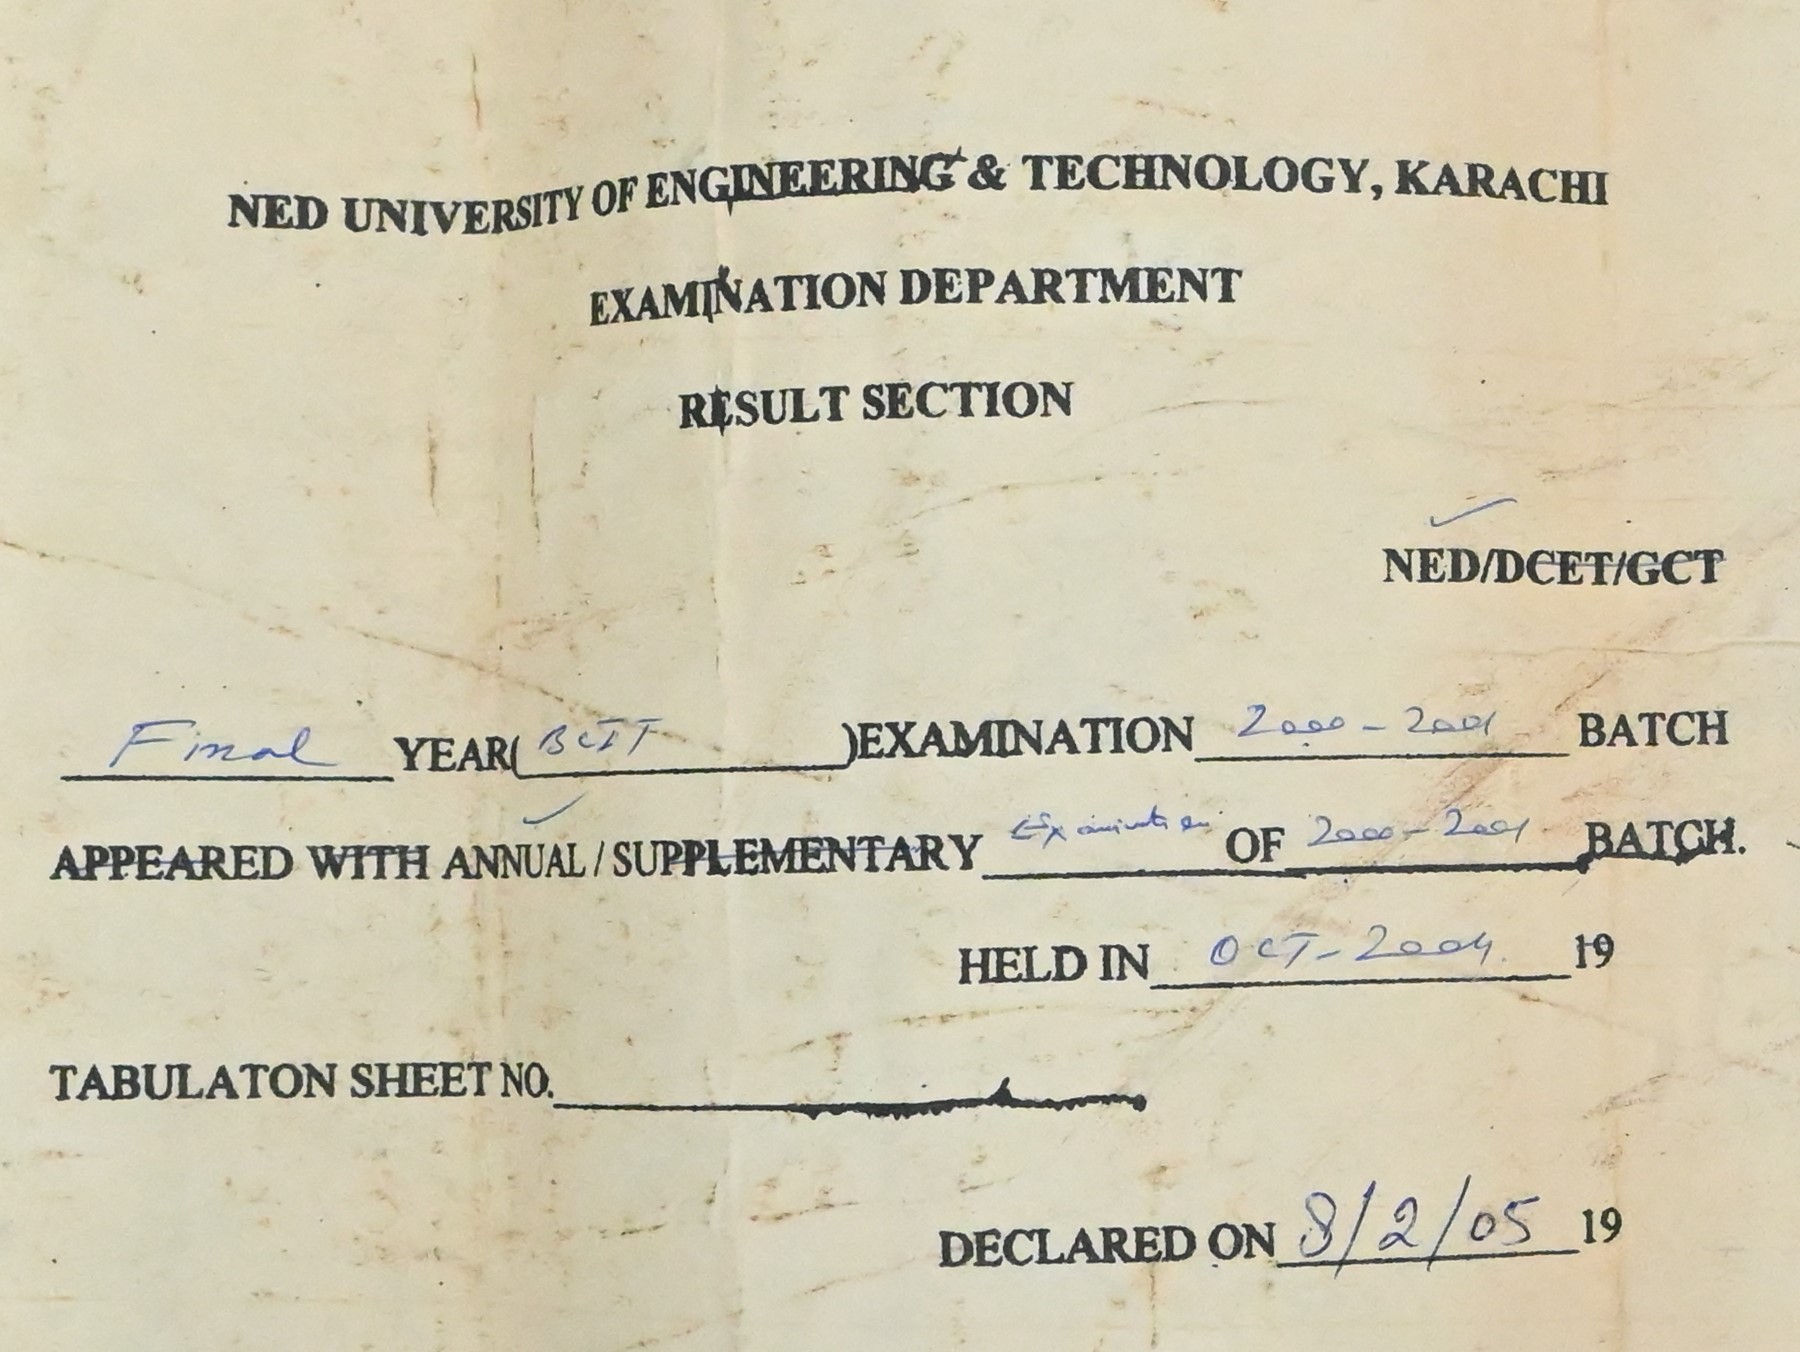 NED UNIVERSITY OF ENGINEERING & TECHNOLOGY, KARACHI
EXAMINATION DEPARTMENT
RESULT SECTION
NED/DCET/GCT
Final YEAR( BCIT )EXAMINATION 2000-2001 BATCH
APPEARED WITH ANNUAL / SUPPLEMENTARY Examination OF 2000-2001 BATCH.
HELD IN OCT-2004. 19
TABULATON SHEET NO.
DECLARED ON 8/2/05 19